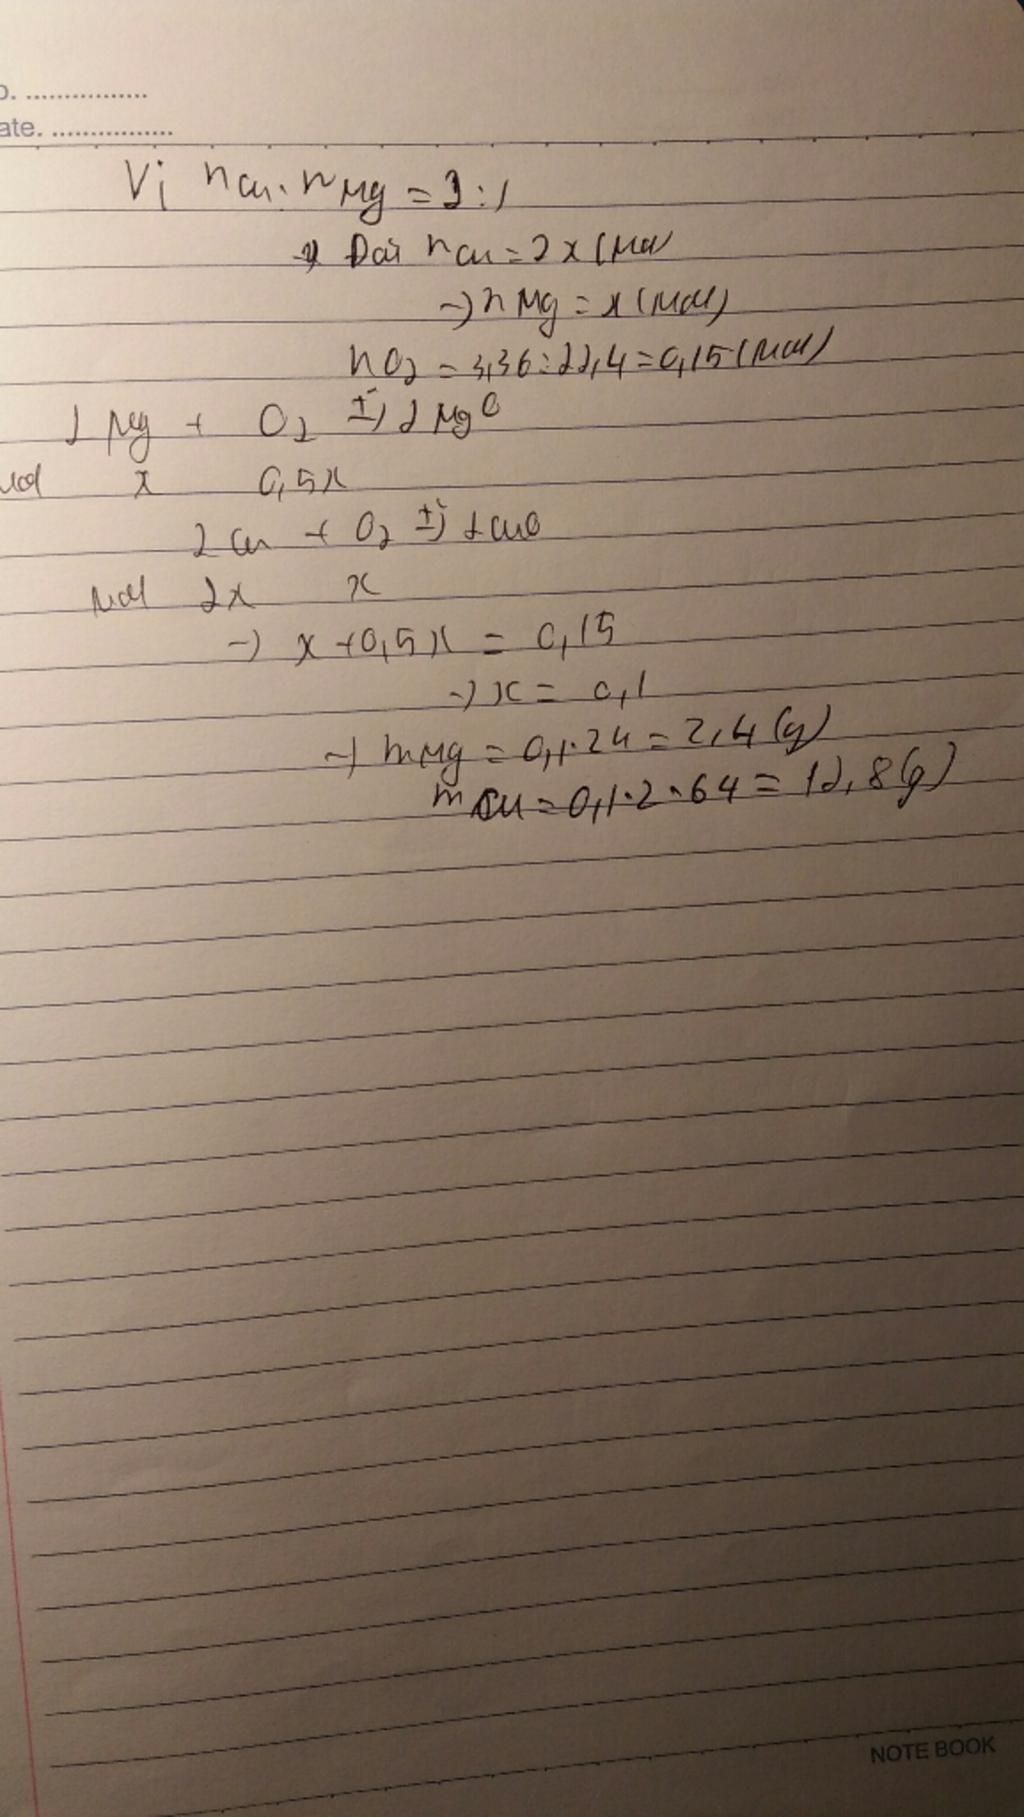 o. ................
ate. ................
Vì nCu : nMg = 2 : 1
→ Đặt nCu = 2x (mol
→ nMg = x (mol)
nO2 = 3,36 : 22,4 = 0,15 (mol)
2Mg + O2 t°→ 2MgO
mol x 0,5x
2Cu + O2 t°→ 2CuO
mol 2x x
→ x + 0,5x = 0,15
→ x = 0,1
→ mMg = 0,1 · 24 = 2,4 (g)
mCu = 0,1 · 2 · 64 = 12,8 (g)
NOTE BOOK